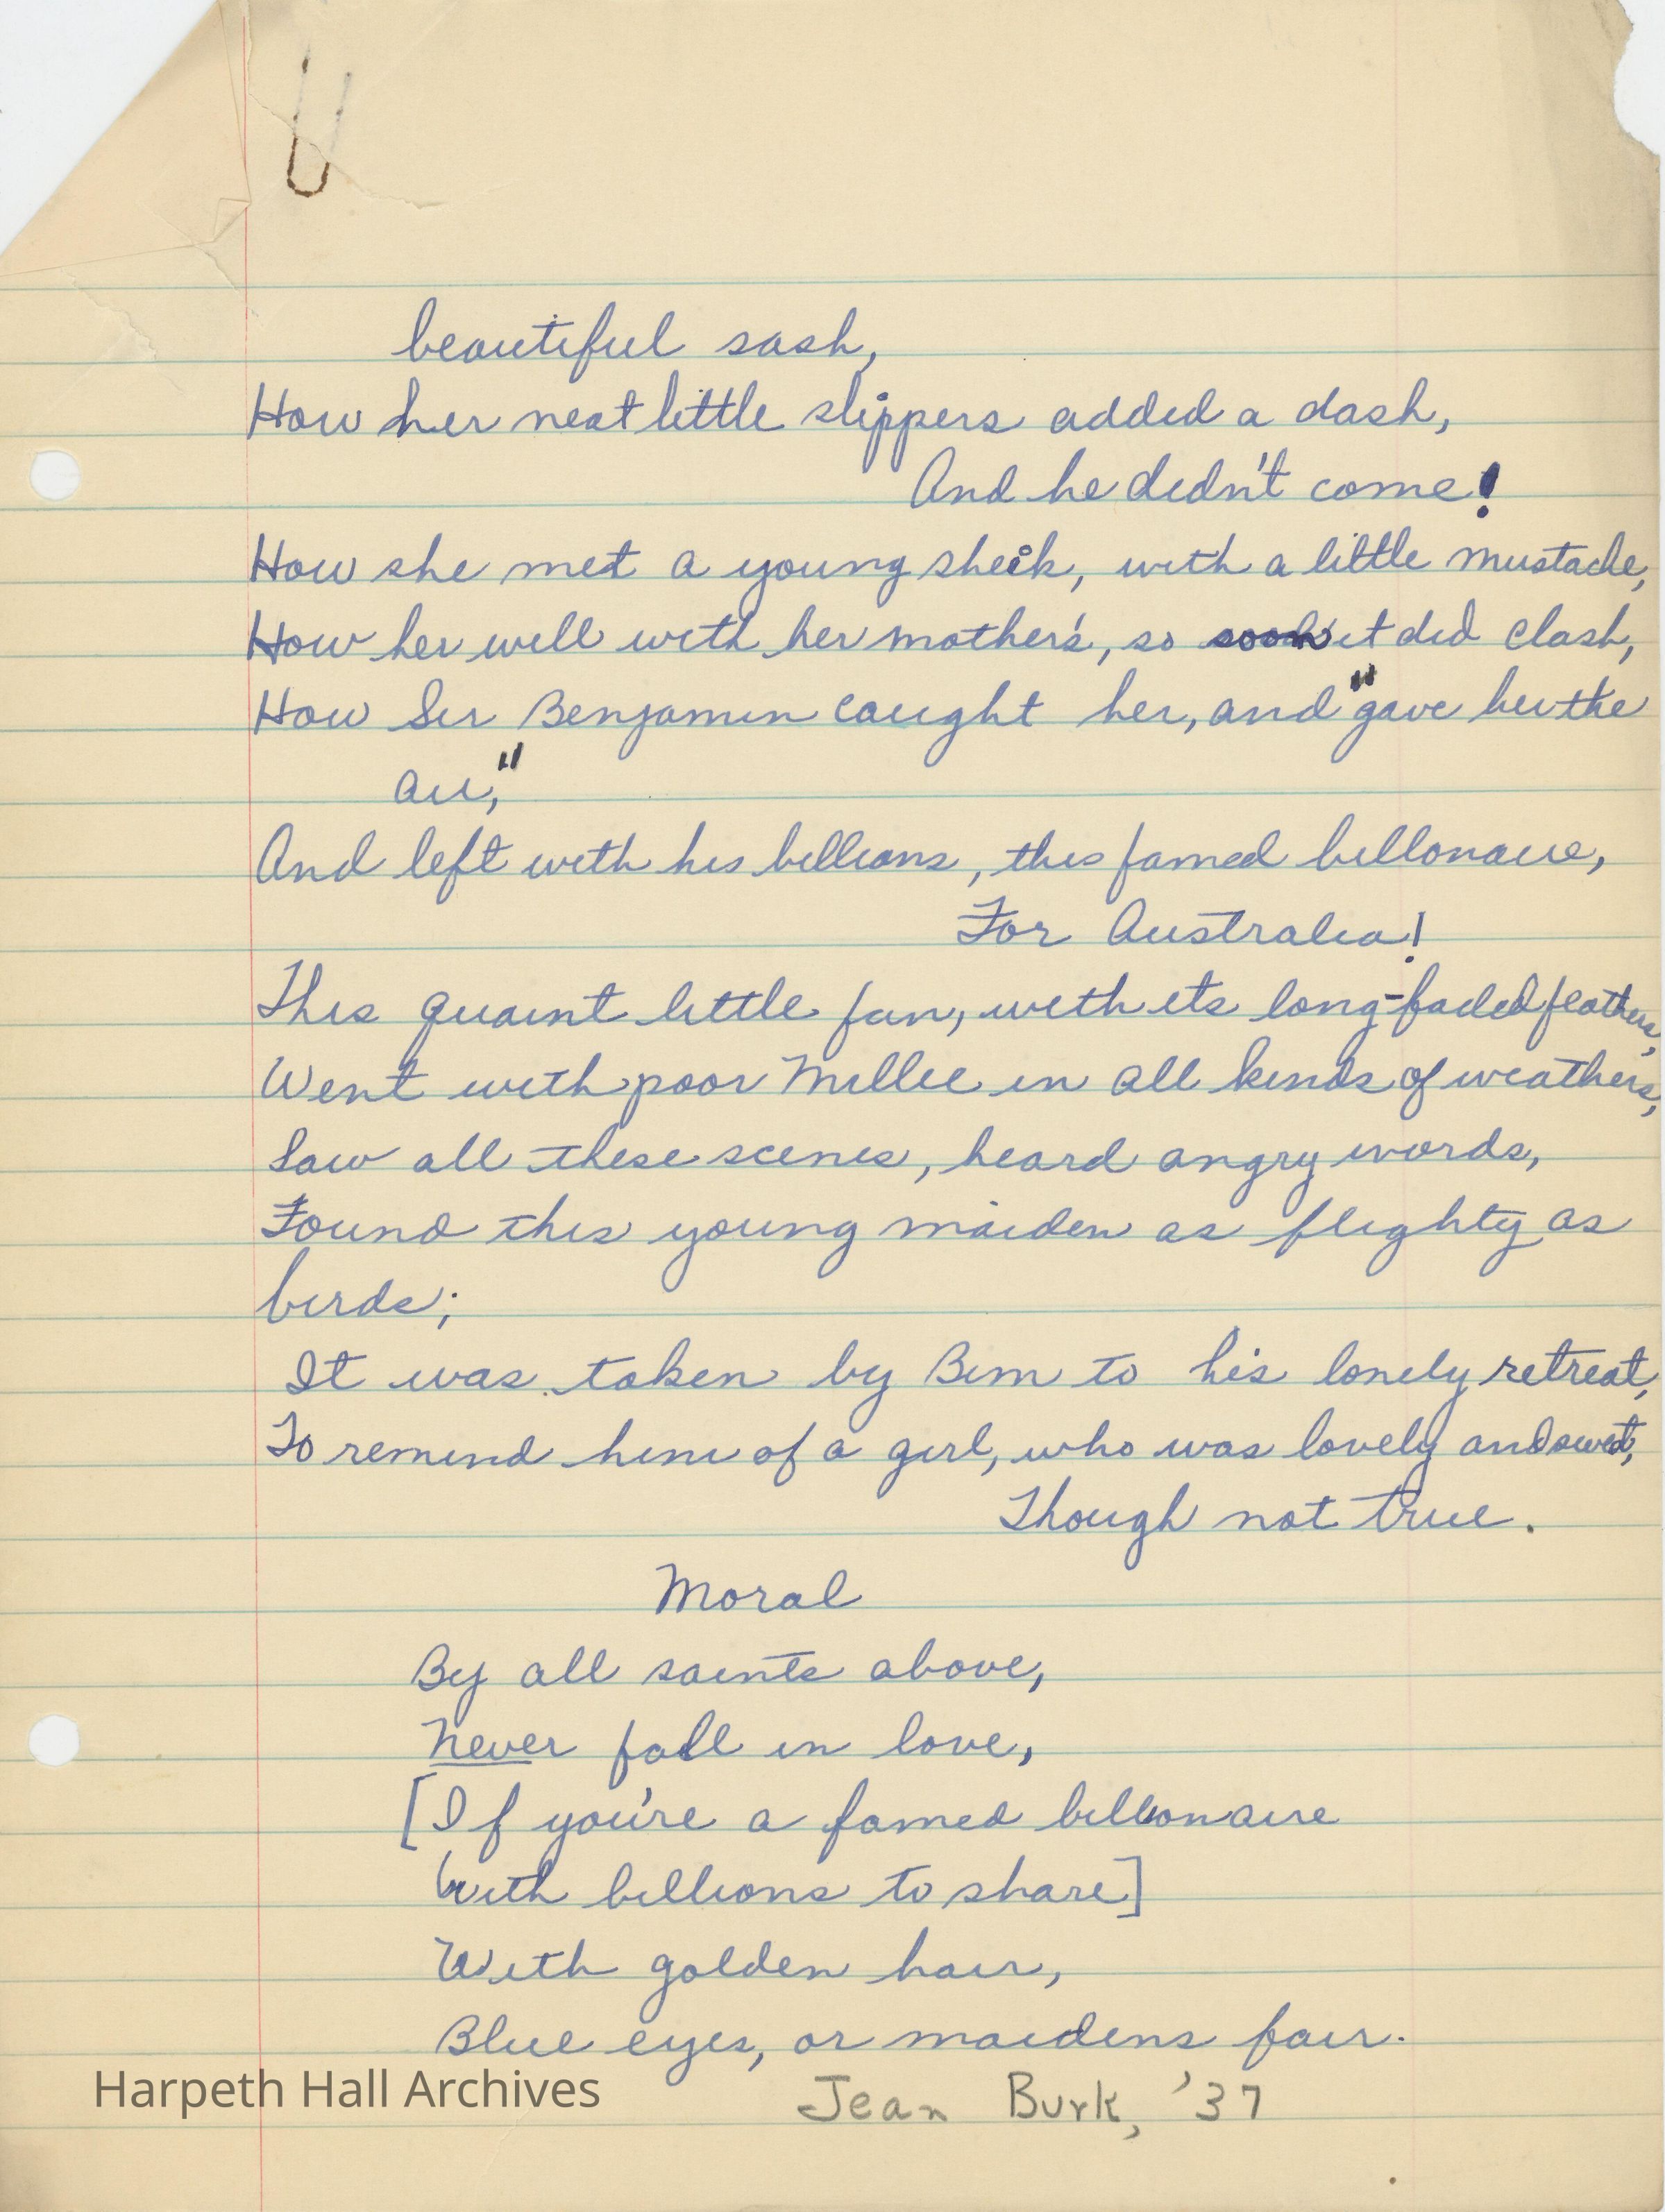 beautiful sash,
How her neat little slippers added a dash,
And he didn't come!
How she met a young sheik, with a little mustache,
How her will with her mother's, so soon it did clash,
How Sir Benjamin caught her, and "gave her the
air,"
And left with his billions, this famed billonaire,
For Australia!
This quaint little fan, with its long-faded feathers,
Went with poor Millie in all kinds of weathers,
Saw all these scenes, heard angry words,
Found this young maiden as flighty as
birds;
It was taken by Bim to his lonely retreat,
To remind him of a girl, who was lovely and sweet,
Though not true.
Moral
By all saints above,
Never fall in love,
[If you're a famed billionaire
With billions to share]
With golden hair,
Blue eyes, or maidens fair.
Jean Burk, '37
Harpeth Hall Archives